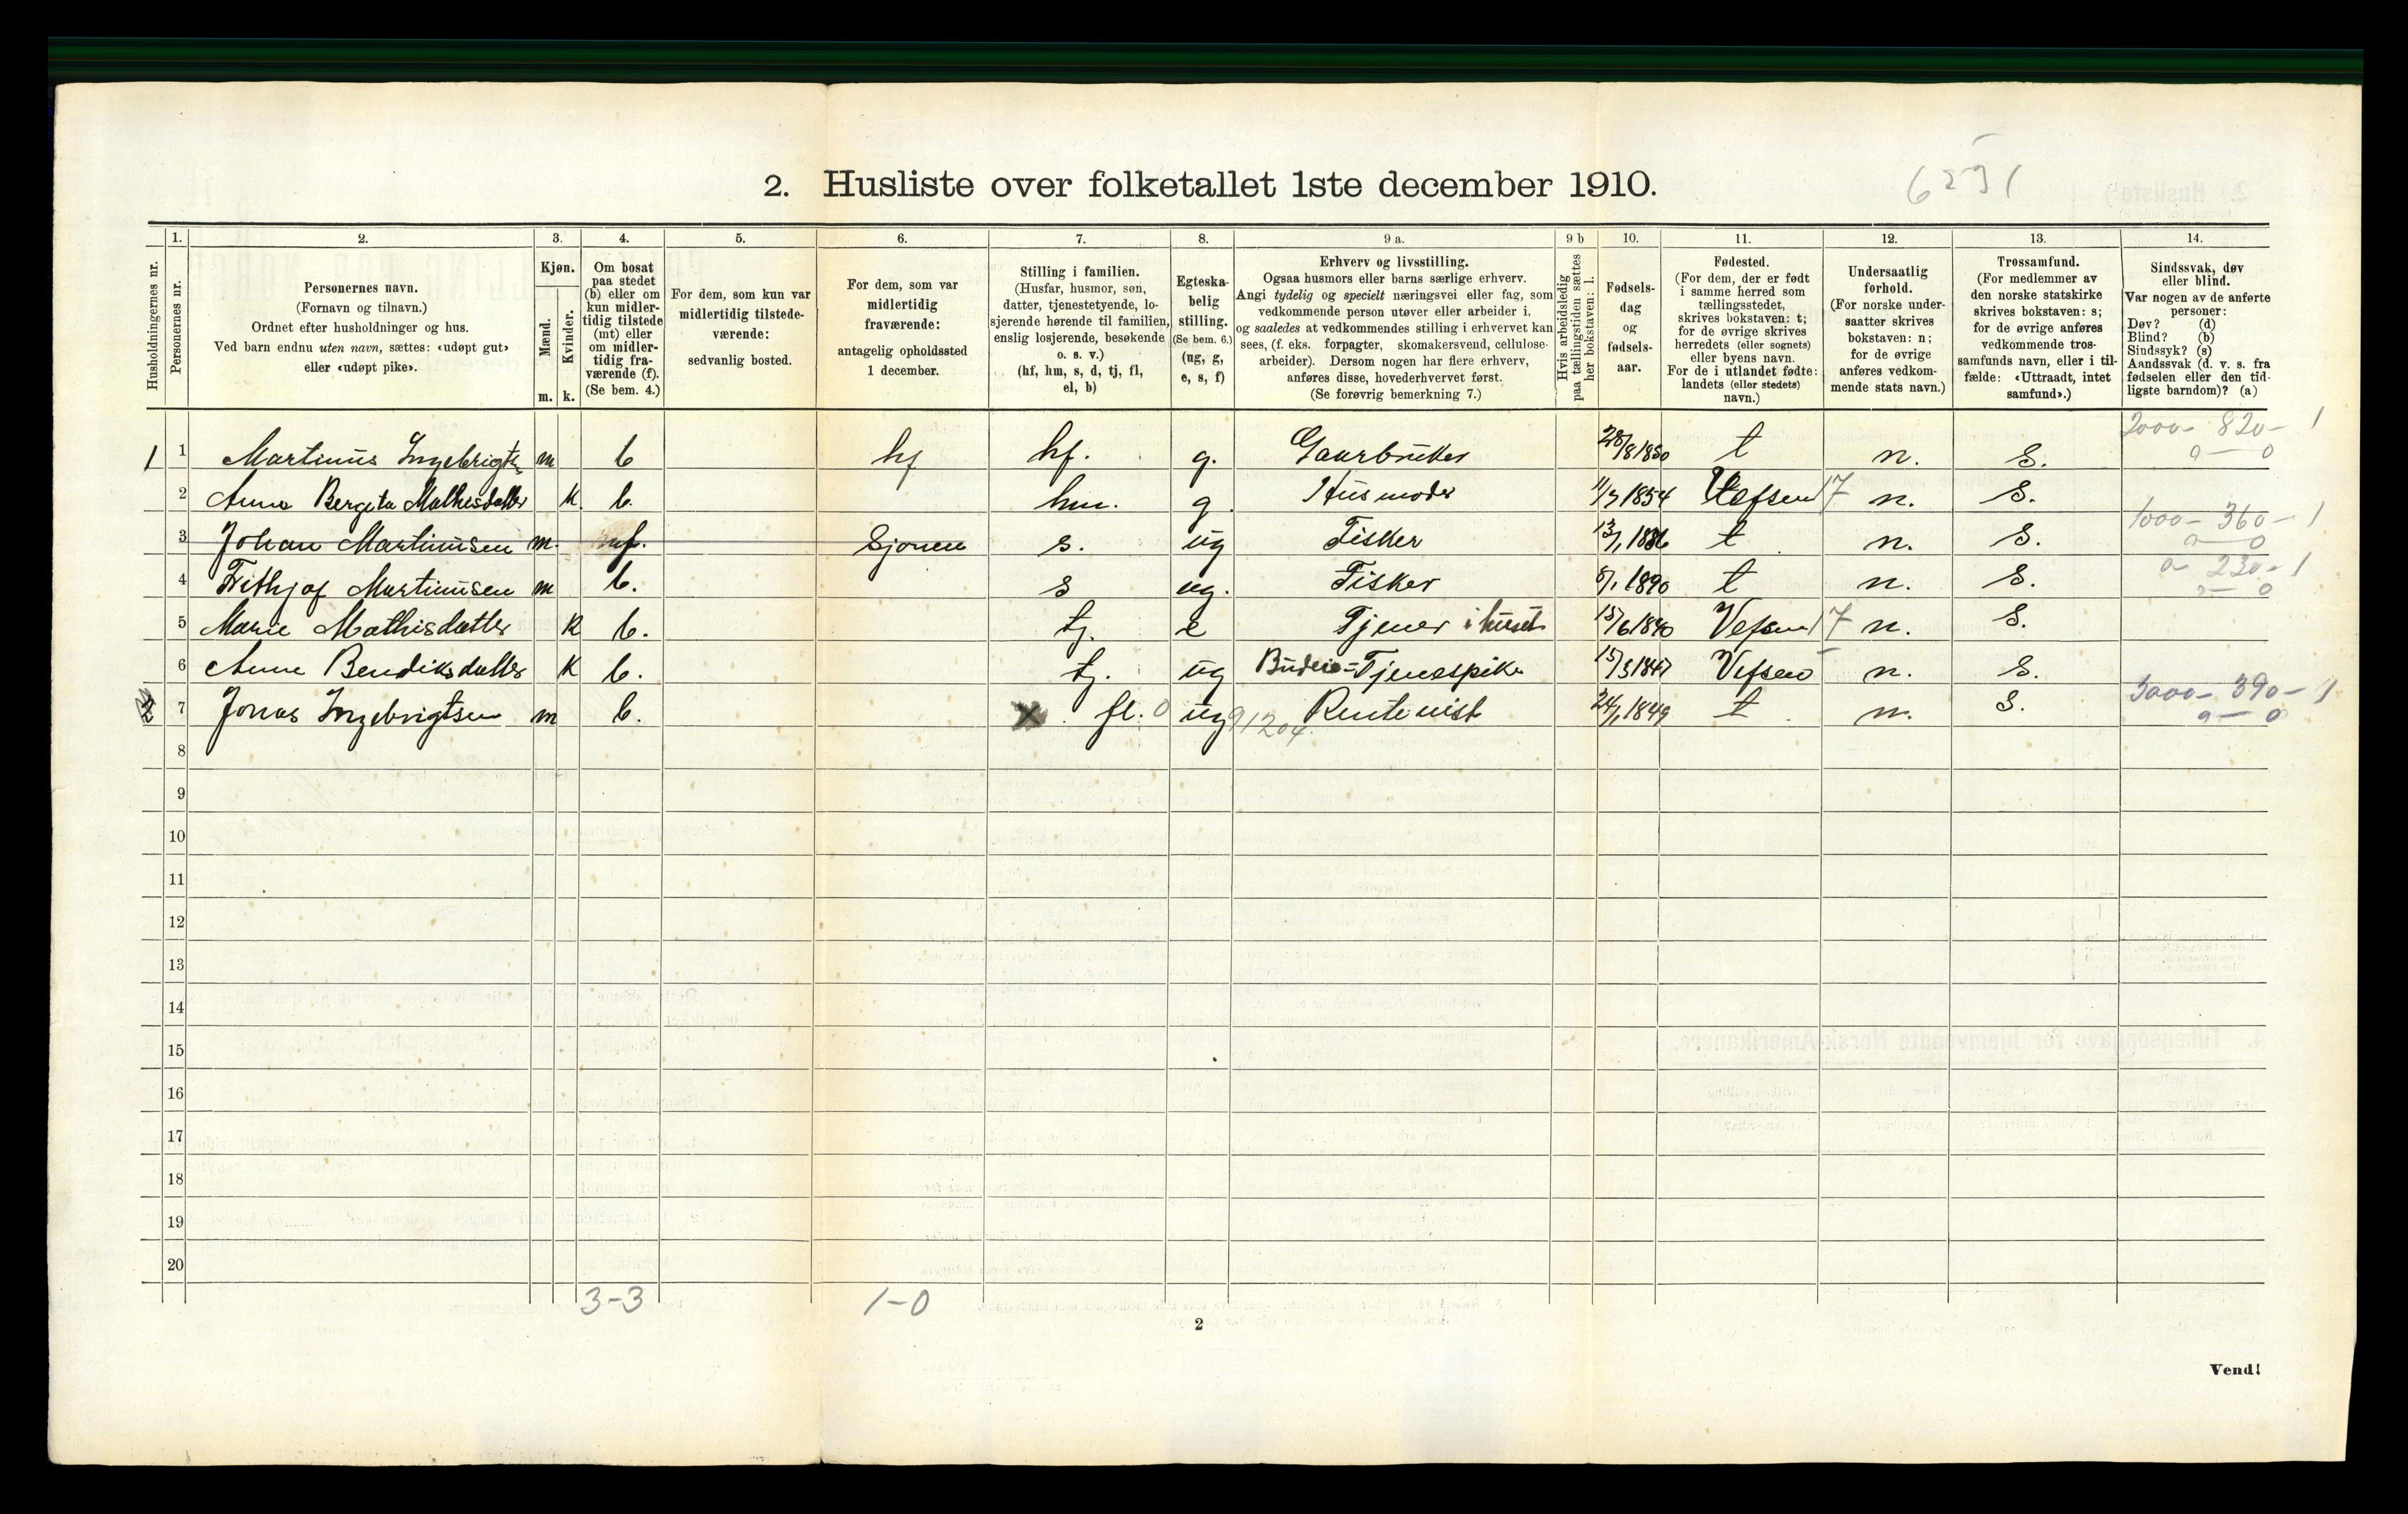 6231
2. Husliste over folketallet 1ste december 1910.
Husholdningernes nr.
1. Personernes nr.
2. Personernes navn. (Fornavn og tilnavn.) Ordnet efter husholdninger og hus. Ved barn endnu uten navn, sættes: «udøpt gut» eller «udøpt pike».
3. Kjøn. Mænd. Kvinder. m. k.
4. Om bosat paa stedet (b) eller om kun midler- tidig tilstede (mt) eller om midler- tidig fra- værende (f). (Se bem. 4.)
5. For dem, som kun var midlertidig tilstede- værende: sedvanlig bosted.
6. For dem, som var midlertidig fraværende: antagelig opholdssted 1 december.
7. Stilling i familien. (Husfar, husmor, søn, datter, tjenestetyende, lo- sjerende hørende til familien, enslig losjerende, besøkende o. s. v.) (hf, hm, s, d, tj, fl, el, b)
8. Egteska- belig stilling. (Se bem. 6.) (ug, g, e, s, f)
9 a. Erhverv og livsstilling. Ogsaa husmors eller barns særlige erhverv. Angi tydelig og specielt næringsvei eller fag, som vedkommende person utøver eller arbeider i, og saaledes at vedkommendes stilling i erhvervet kan sees, (f. eks. forpagter, skomakersvend, cellulose- arbeider). Dersom nogen har flere erhverv, anføres disse, hovederhvervet først. (Se forøvrig bemerkning 7.)
9 b Hvis arbeidsledig paa tællingstiden sættes her bokstaven: l.
10. Fødsels- dag og fødsels- aar.
11. Fødested. (For dem, der er født i samme herred som tællingsstedet, skrives bokstaven: t; for de øvrige skrives herredets (eller sognets) eller byens navn. For de i utlandet fødte: landets (eller stedets) navn.)
12. Undersaatlig forhold. (For norske under- saatter skrives bokstaven: n; for de øvrige anføres vedkom- mende stats navn.)
13. Trossamfund. (For medlemmer av den norske statskirke skrives bokstaven: s; for de øvrige anføres vedkommende tros- samfunds navn, eller i til- fælde: «Uttraadt, intet samfund».)
14. Sindssvak, døv eller blind. Var nogen av de anførte personer: Døv? (d) Blind? (b) Sindssyk? (s) Aandssvak (d. v. s. fra fødselen eller den tid- ligste barndom)? (a)
2000 - 820 - 1
1 1 Martinus Ingebrigts m b hf hf. g. Gaarbruker 28/8 1850 t n. S. 0 - 0
2 Anna Bergita Mathisdatter k b. hm. g. Husmoder 11/7 1854 Vefsen 17 n. S.
1000 - 360 - 1
3 Johan Martinusen m. f. Sjonen s. ug Fisker 13/1 1886 t n. S. 0 - 0
0 - 230 - 1
4 Frithjof Martinusen m b. s ug. Fisker 8/1 1890 t n. S. 0 - 0
5 Marie Mathisdatter k b. tj. e Tjener i huset 15/6 1840 Vefsen 17 n. S.
6 Anne Bendiksdatter k b. tj. ug Budeie = Tjenespike 15/3 1847 Vefsen n. S.
3000 - 390 - 1
7 Jonas Ingebrigtsen m b. x fl. 0 ug 91204. Rentenist 24/1 1849 t n. S. 0 - 0
8
9
10
11
12
13
14
15
16
17
18
19
20
3-3 1-0
2
Vend!